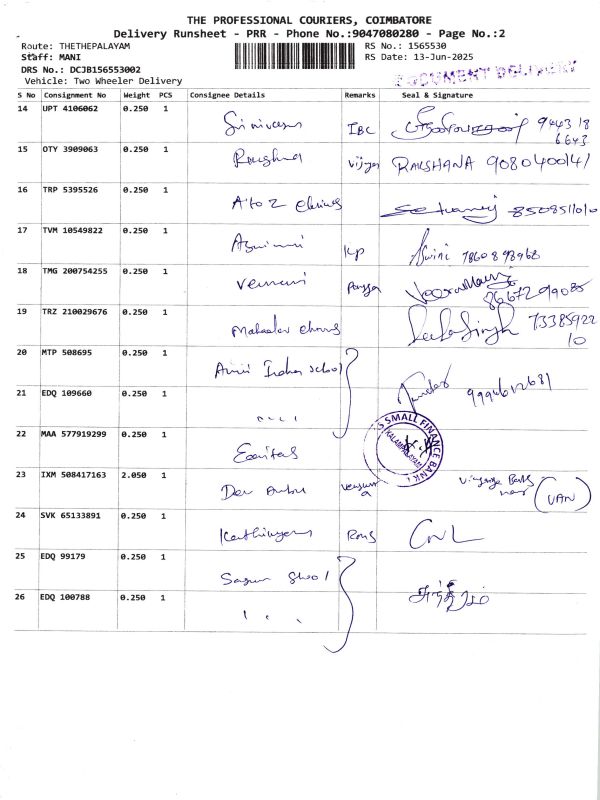 THE PROFESSIONAL COURIERS, COIMBATORE
Delivery Runsheet - PRR - Phone No.:9047080280 - Page No.:2
Route: THETHEPALAYAM
RS No.: 1565530
Staff: MANI
RS Date: 13-Jun-2025
DRS No.: DCJB156553002
Vehicle: Two Wheeler Delivery
DOCUMENT DELIVERY
S No Consignment No Weight PCS Consignee Details Remarks Seal & Signature
14 UPT 4106062 0.250 1 Srinivasan IBC 944318
6643
15 OTY 3909063 0.250 1 Rakshna Vijay RAKSHANA 9080400141
16 TRP 5395526 0.250 1 A to Z 8508511010
17 TVM 10549822 0.250 1 Aswini KP Aswini 7860898968
18 TMG 200754255 0.250 1 8667299085
19 TRZ 210029676 0.250 1 73385922
10
20 MTP 508695 0.250 1 Amrit Indian School
21 EDQ 109660 0.250 1 " " 9994612681
22 MAA 577919299 0.250 1 Equitas
SMALL FINANCE BANK
KALAMPALAYAM
23 IXM 508417163 2.050 1 Dev (VAN)
24 SVK 65133891 0.250 1
25 EDQ 99179 0.250 1 School
26 EDQ 100788 0.250 1 " "